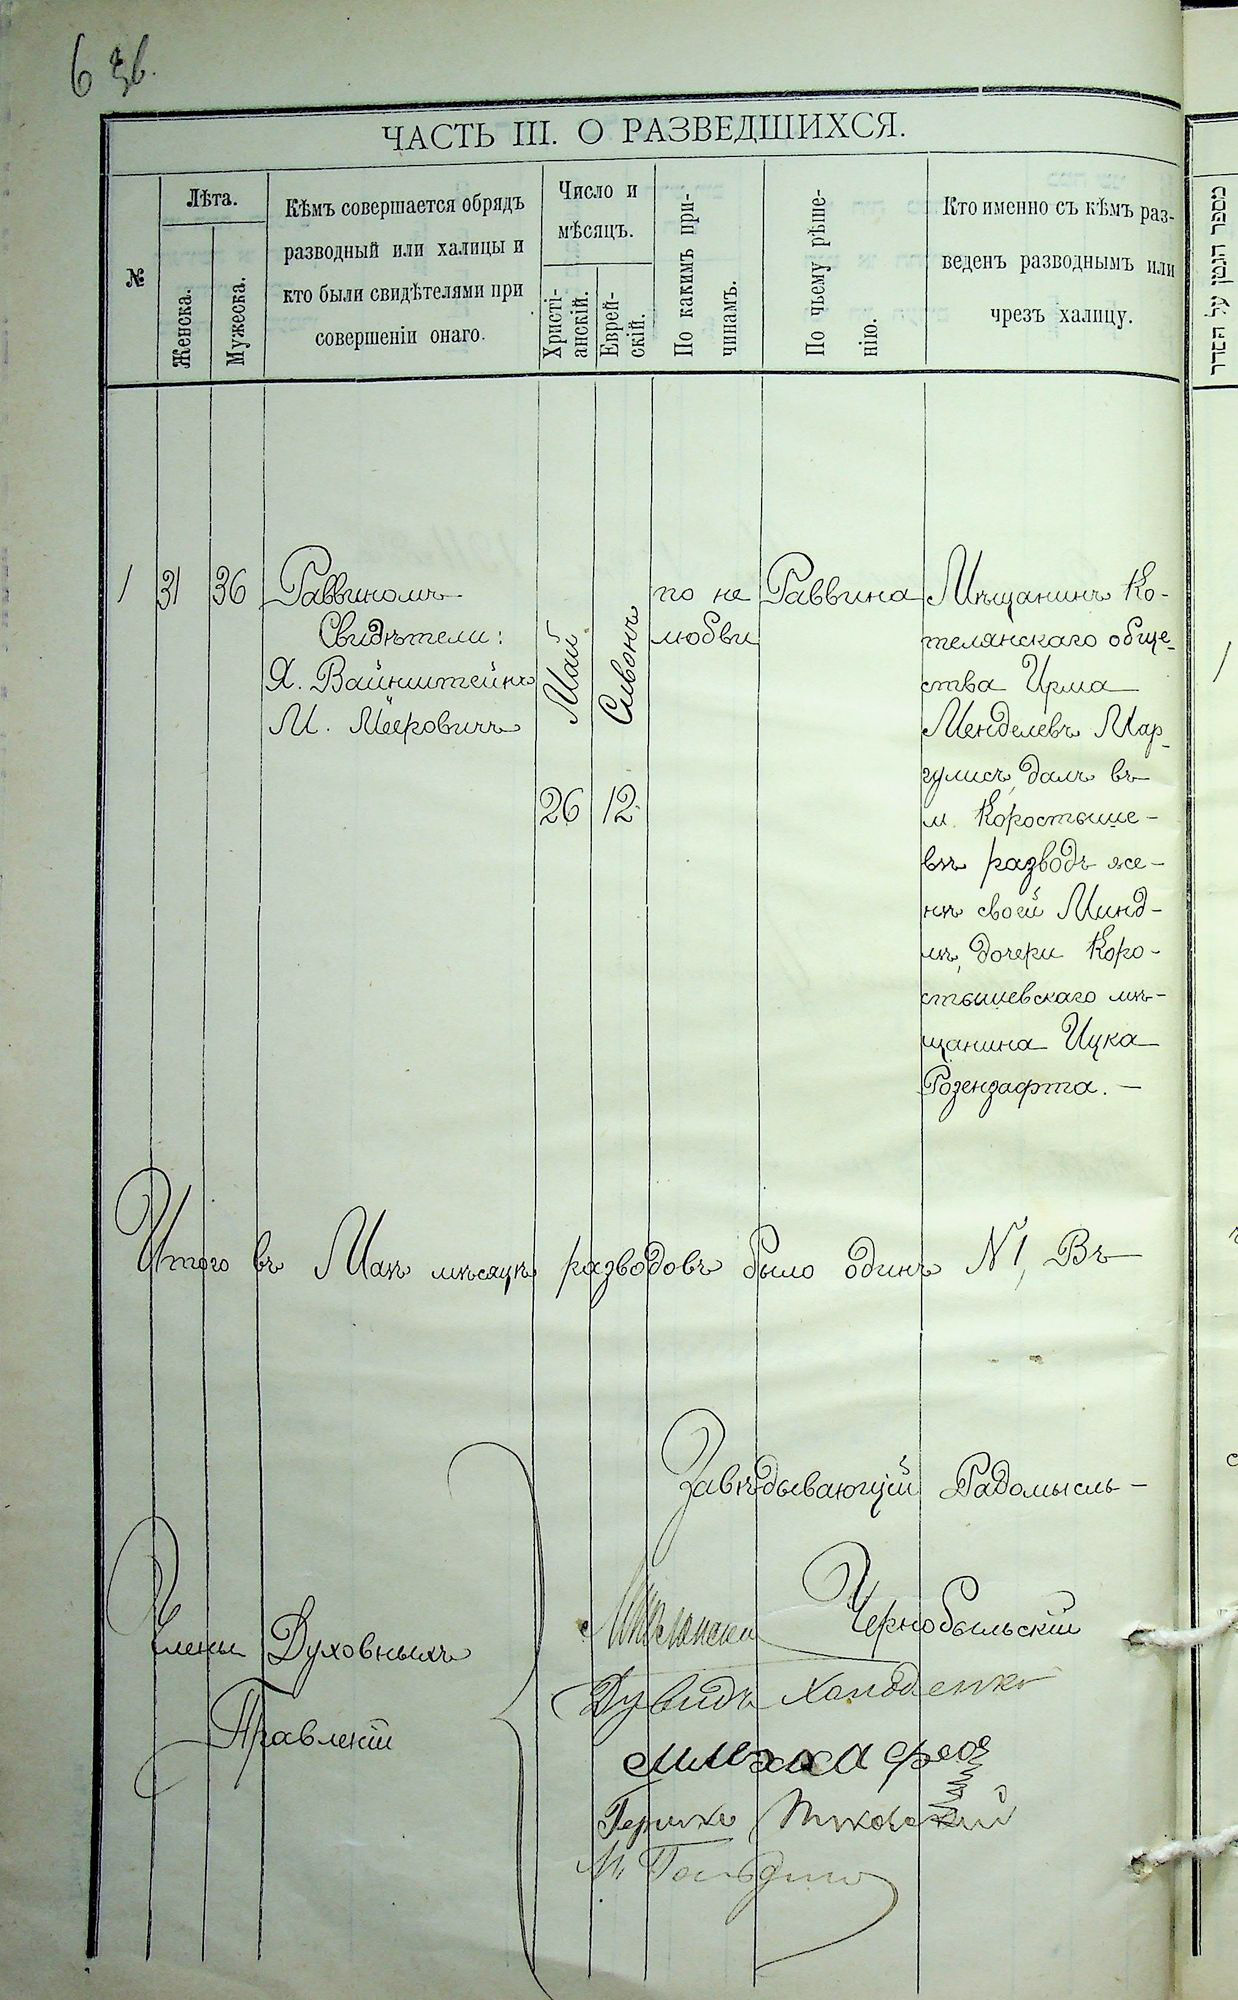 6 зв.
ЧАСТЬ III. О РАЗВЕДШИХСЯ.
№
Лѣта.
Женска.
Мужеска.
Кѣмъ совершается обрядъ
разводный или халицы и
кто были свидѣтелями при
совершеніи онаго.
Число и
мѣсяцъ.
Христі-
анскій.
Еврей-
скій.
По какимъ при-
чинамъ.
По чьему рѣше-
нію.
Кто именно съ кѣмъ раз-
веденъ разводнымъ или
чрезъ халицу.
מספר הגטן על הסדר
1
31
36
Раввиномъ
Свидѣтели:
Я. Вайнштейнъ
М. Мееровичъ
Май
26
Сивонъ
12
по не
любви
Раввина
Мѣщанинъ Ко-
телянскаго обще-
ства Ирма
Менделевъ Мар-
гулисъ, далъ въ
м. Коростыше-
вѣ разводъ же-
нѣ своей Минд-
лѣ, дочери Коро-
стышевскаго мѣ-
щанина Ицка
Розензафта. —
1
Итого въ Маѣ мѣсяцѣ разводовъ было одинъ N 1, Въ
Завѣдывающій Радомысль-
Чернобыльскій
Члены Духовныхъ
Правленій
Дувидъ